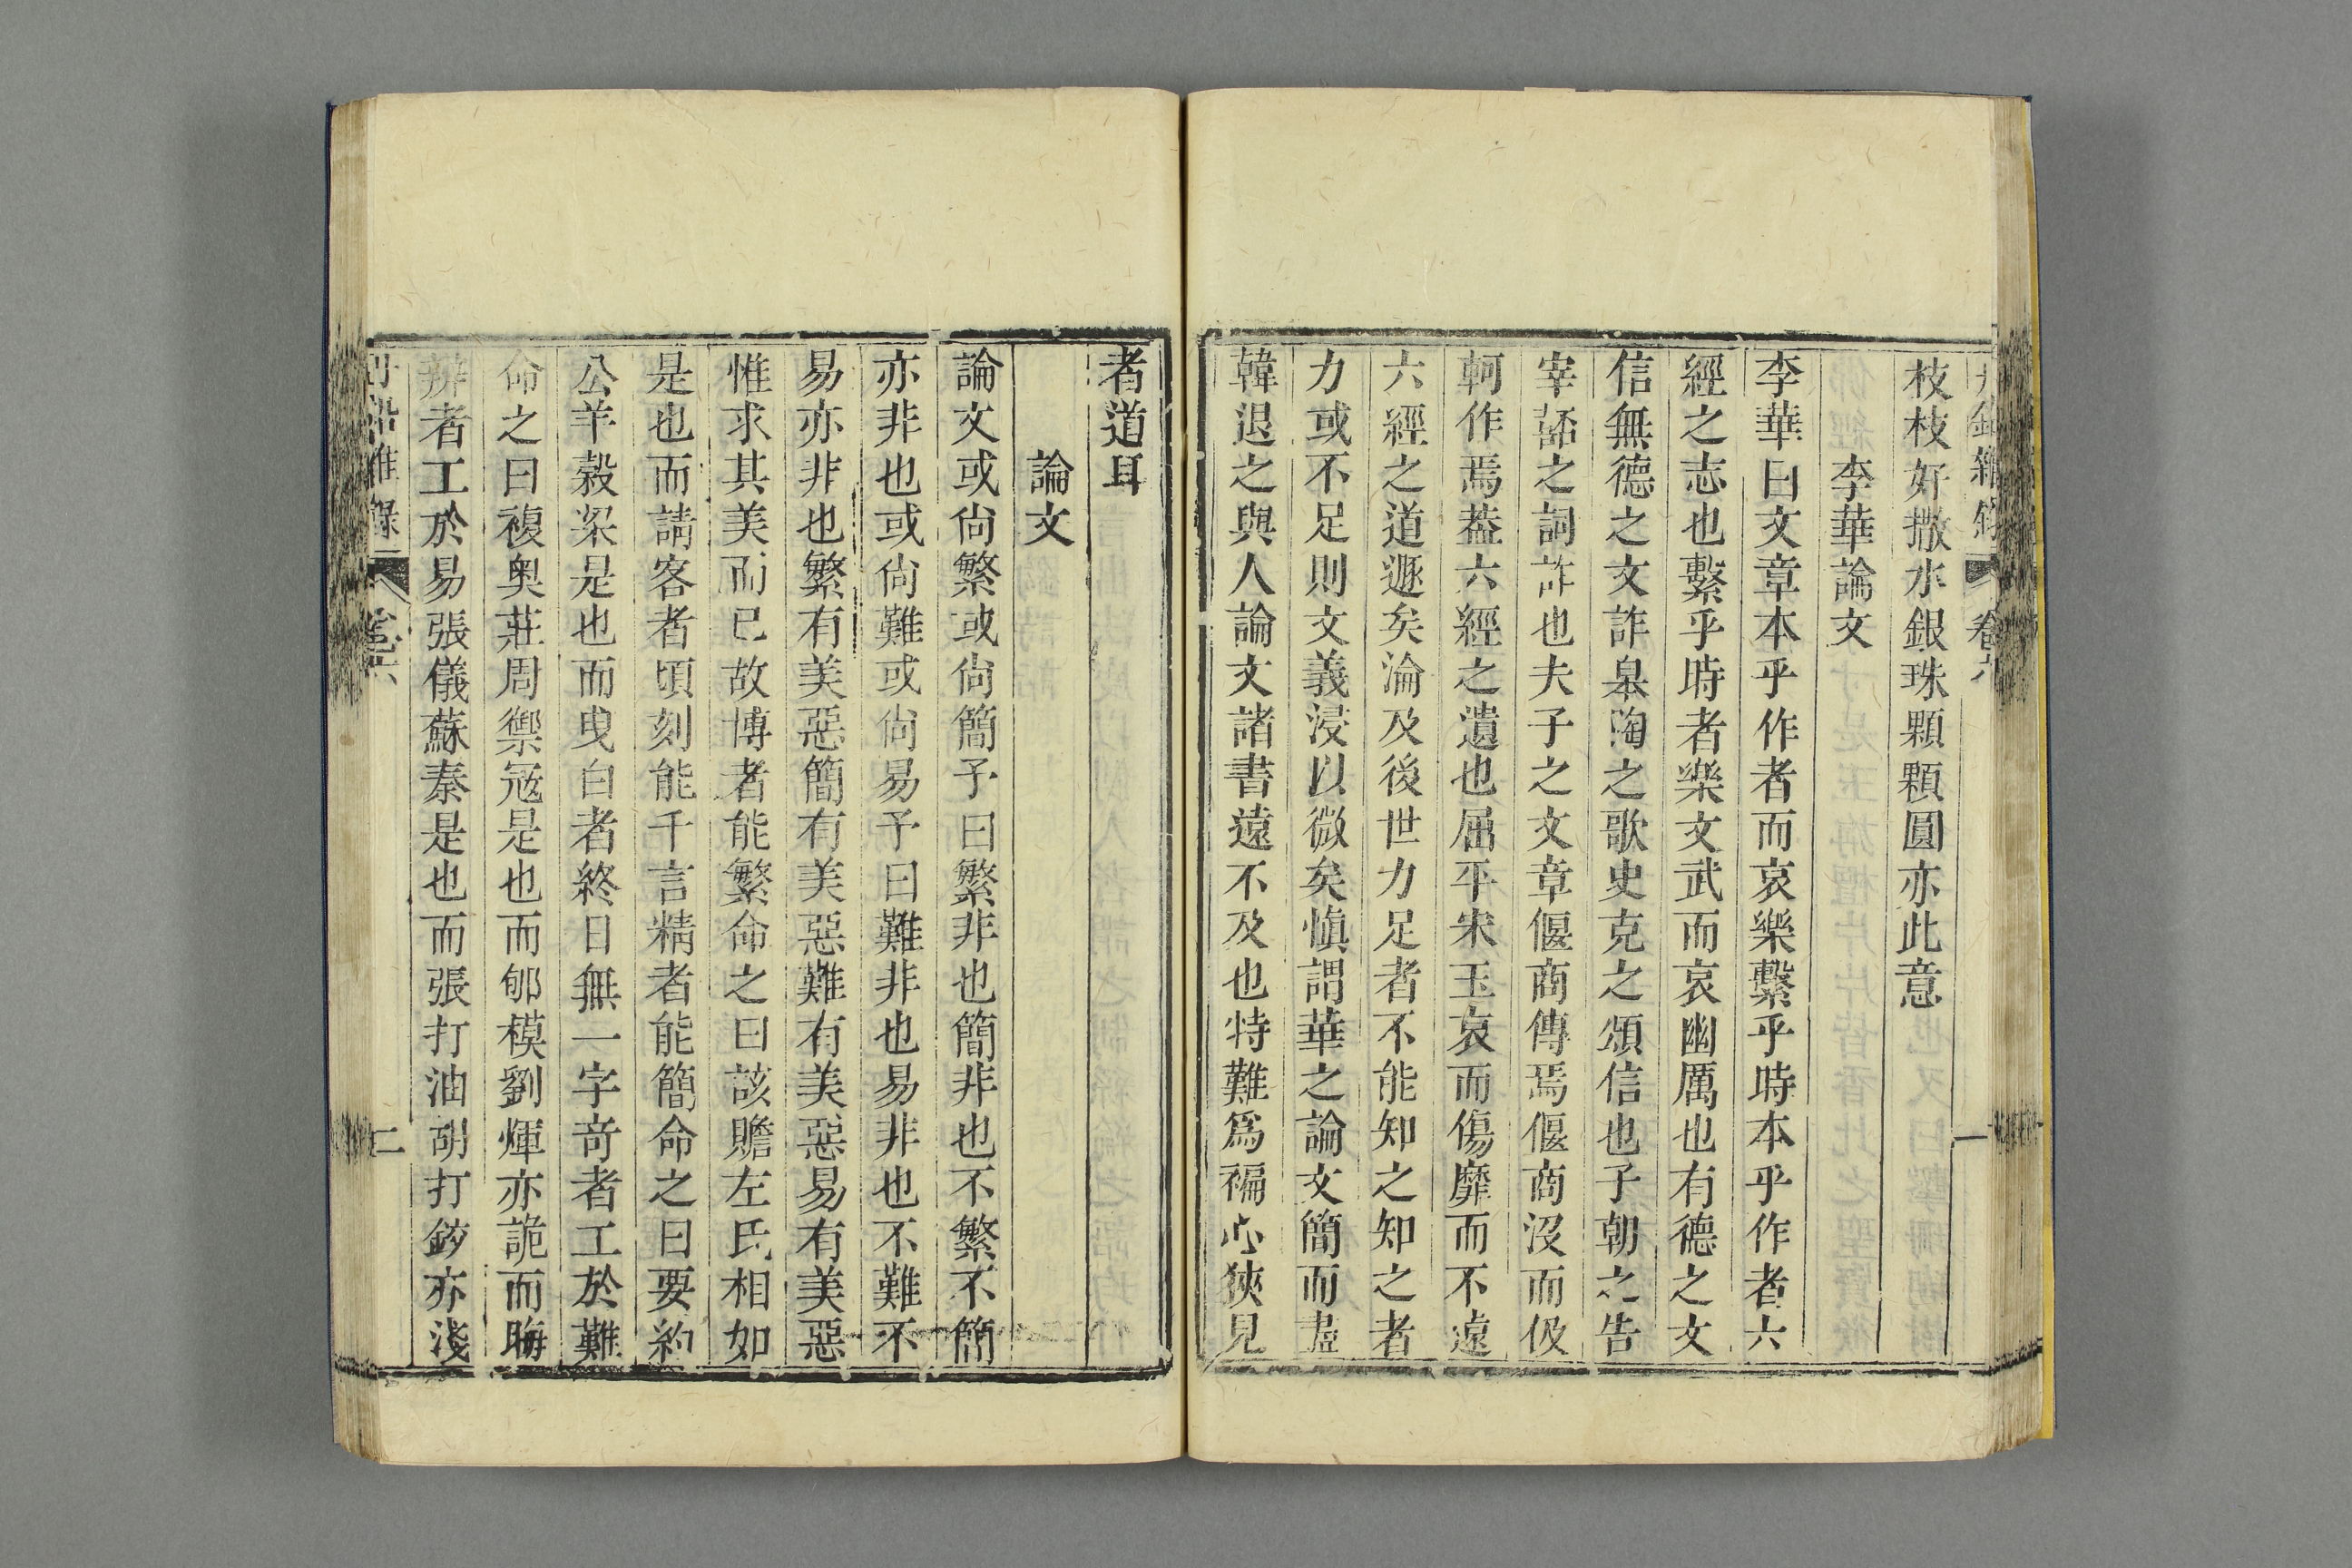 枝枝好撒水銀珠顆顆圓亦此意
李華論文
李華曰文章本乎作者而哀樂繫乎時本乎作者六
經之志也繫乎時者樂文武而哀幽厲也有德之文
信無德之文詐臯陶之歌史克之頌信也子朝之告
宰嚭之詞詐也夫子之文章偃商傳焉偃商沒而伋
軻作焉蓋六經之遺也屈平宋玉哀而傷靡而不遠
六經之道遯矣淪及後世力足者不能知之知之者
力或不足則文義浸以微矣愼謂華之論文簡而盡
韓退之與人論文諸書遠不及也特難爲褊心狹見
者道耳
論文
論文或尙繁或尙簡予曰繁非也簡非也不繁不簡
亦非也或尙難或尙易予曰難非也易非也不難不
易亦非也繁有美惡簡有美惡難有美惡易有美惡
惟求其美而已故博者能繁命之曰該贍左氏相如
是也而請客者頃刻能千言精者能簡命之曰要約
公羊穀梁是也而曳白者終日無一字奇者工於難
命之曰複奧莊周禦冦是也而郇模劉煇亦詭而晦
辯者工於易張儀蘇秦是也而張打油胡打鉸亦淺
二